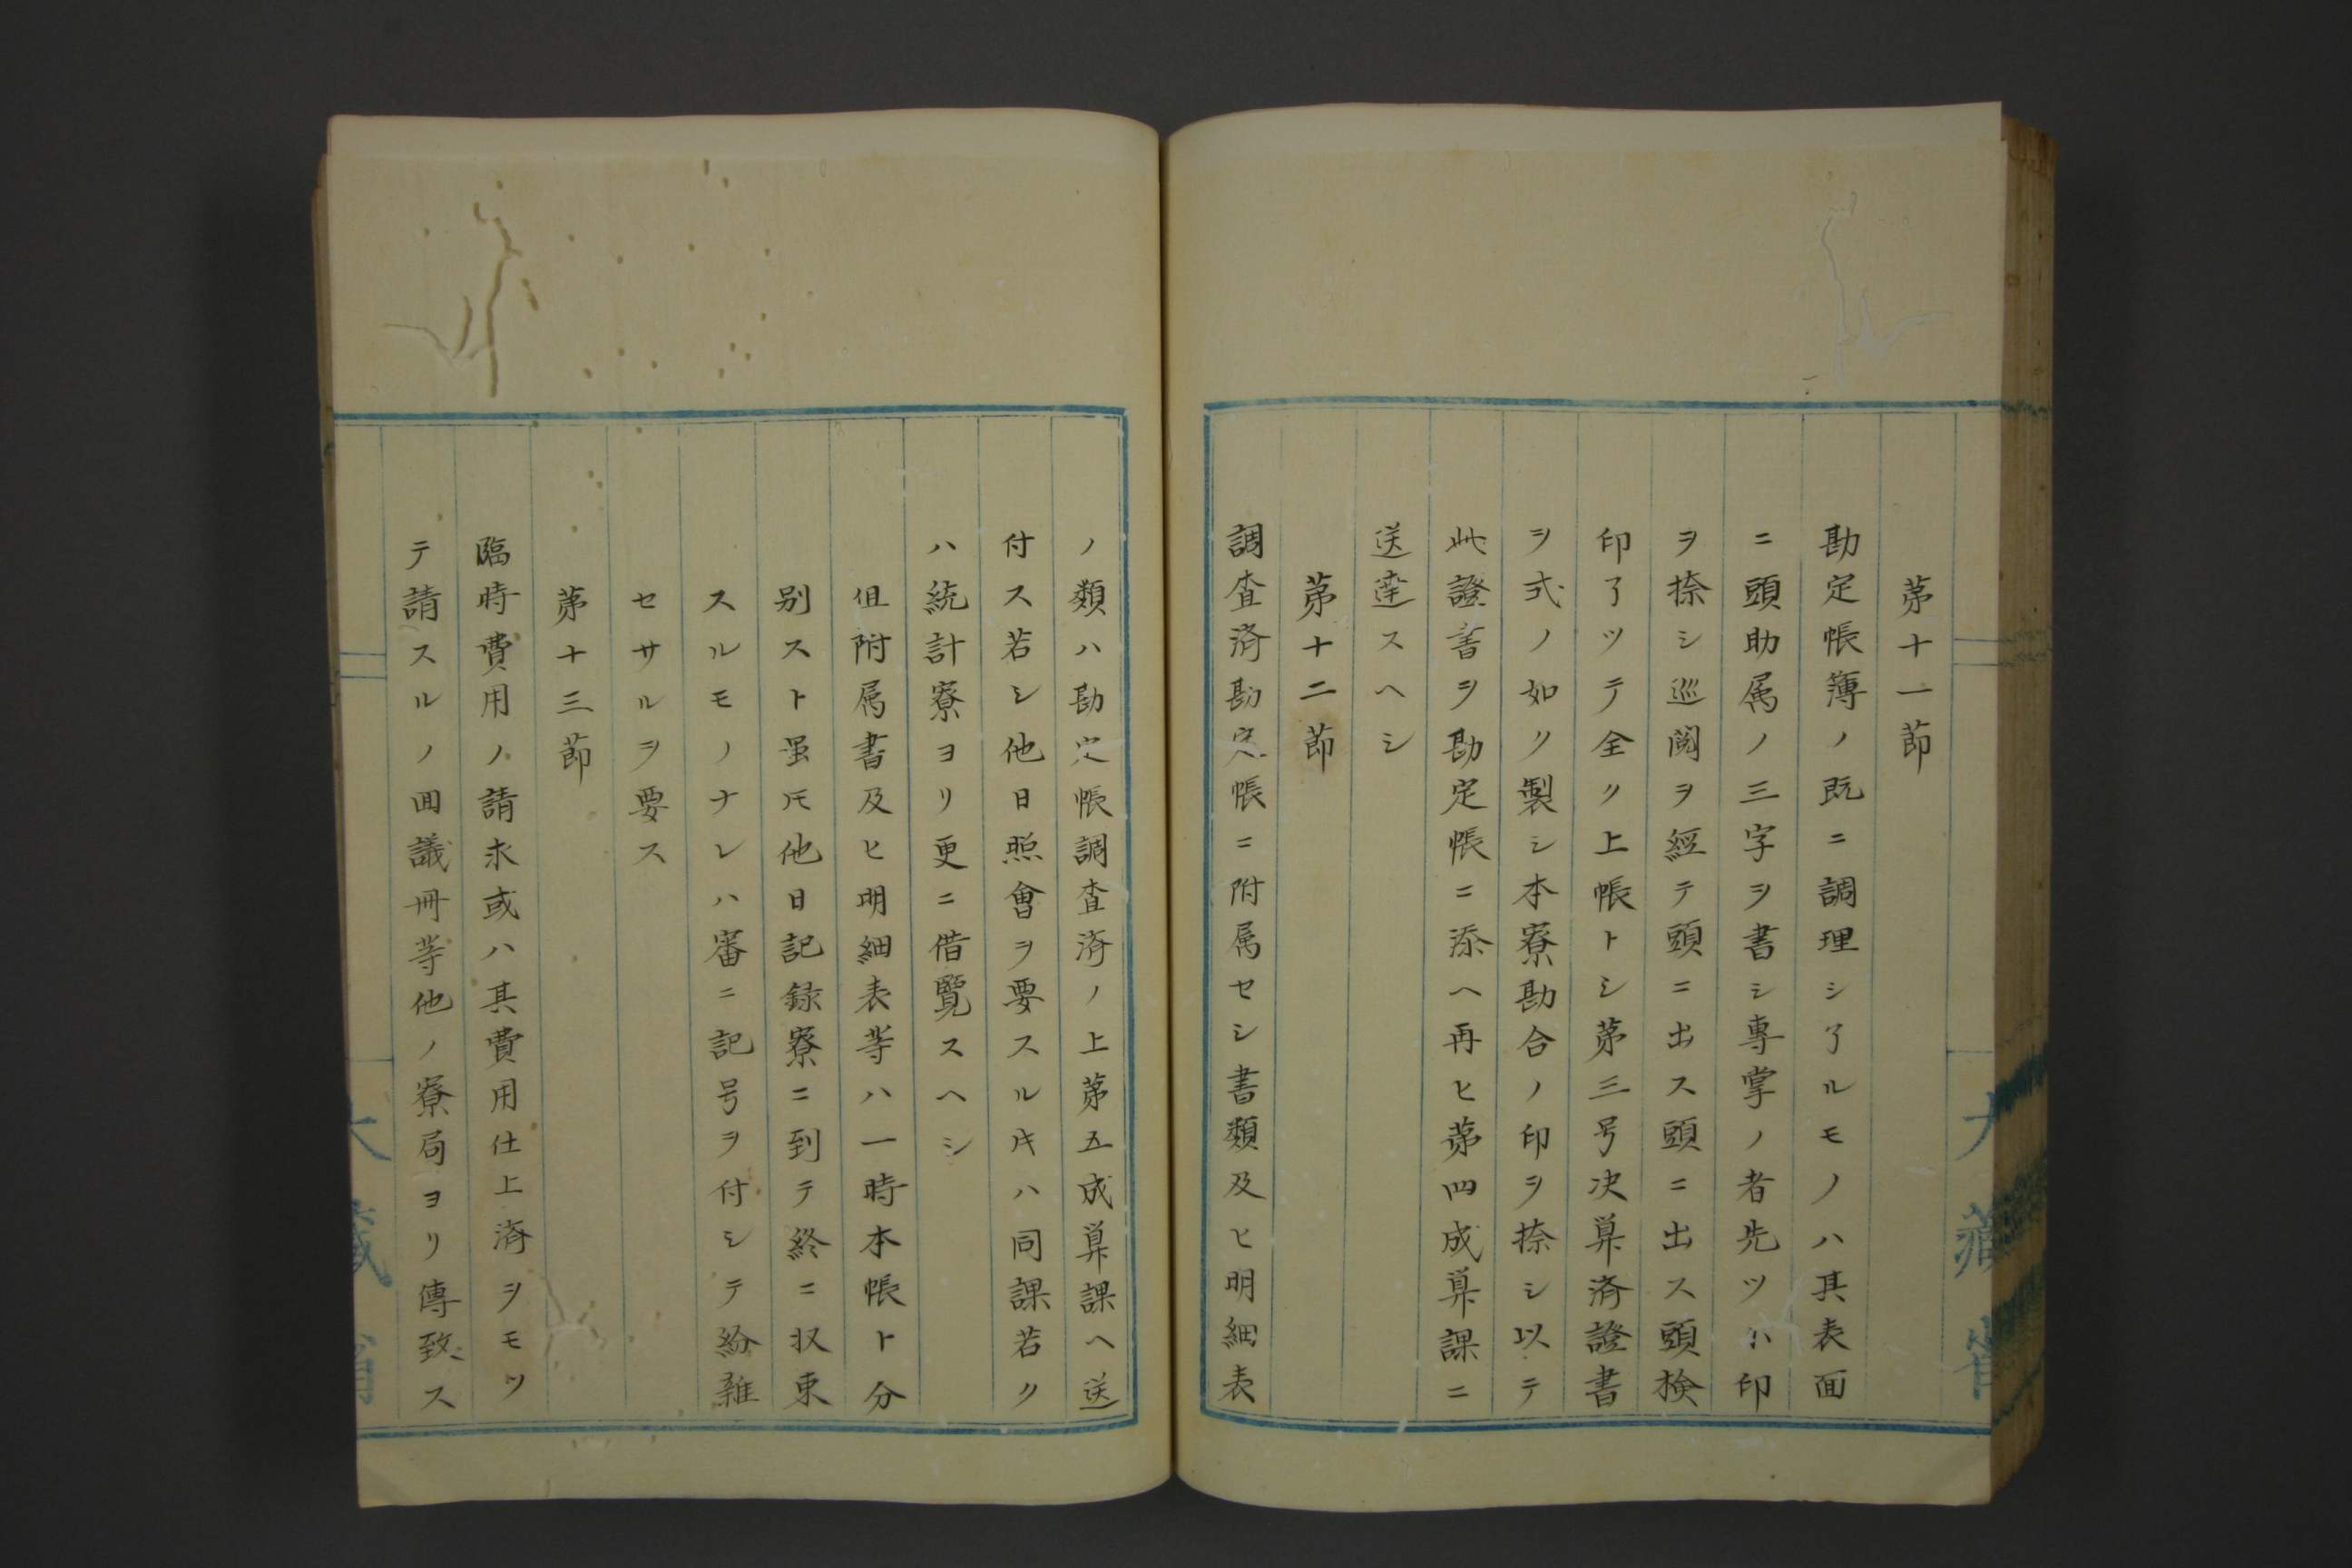 第十一節
勘定帳簿ノ既ニ調理シ了ルモノハ其表面
ニ頭助属ノ三字ヲ書シ專掌ノ者先ツ小印
ヲ捺シ巡閲ヲ經テ頭ニ出ス頭ニ出ス頭検
印了ツテ全ク上帳トシ第三号决算済證書
ヲ式ノ如ク製シ本寮勘合ノ印ヲ捺シ以テ
此證書ヲ勘定帳ニ添ヘ再ヒ第四成算課ニ
送達スヘシ
第十二節
調査済勘定帳ニ附属セシ書類及ヒ明細表
ノ類ハ勘定帳調査済ノ上第五成算課ヘ送
付ス若シ他日照會ヲ要スル片ハ同課若ク
ハ統計寮ヨリ更ニ借覽スヘシ
但附属書及ヒ明細表等ハ一時本帳ト分
别スト虽𪜈他日記録寮ニ到テ終ニ収束
スルモノナレハ審ニ記号ヲ付シテ紛雜
セサルヲ要ス
第十三節
臨時費用ノ請求或ハ其費用仕上済ヲモツ
テ請スルノ回議冊等他ノ寮局ヨリ傳致ス
大藏省
大藏省